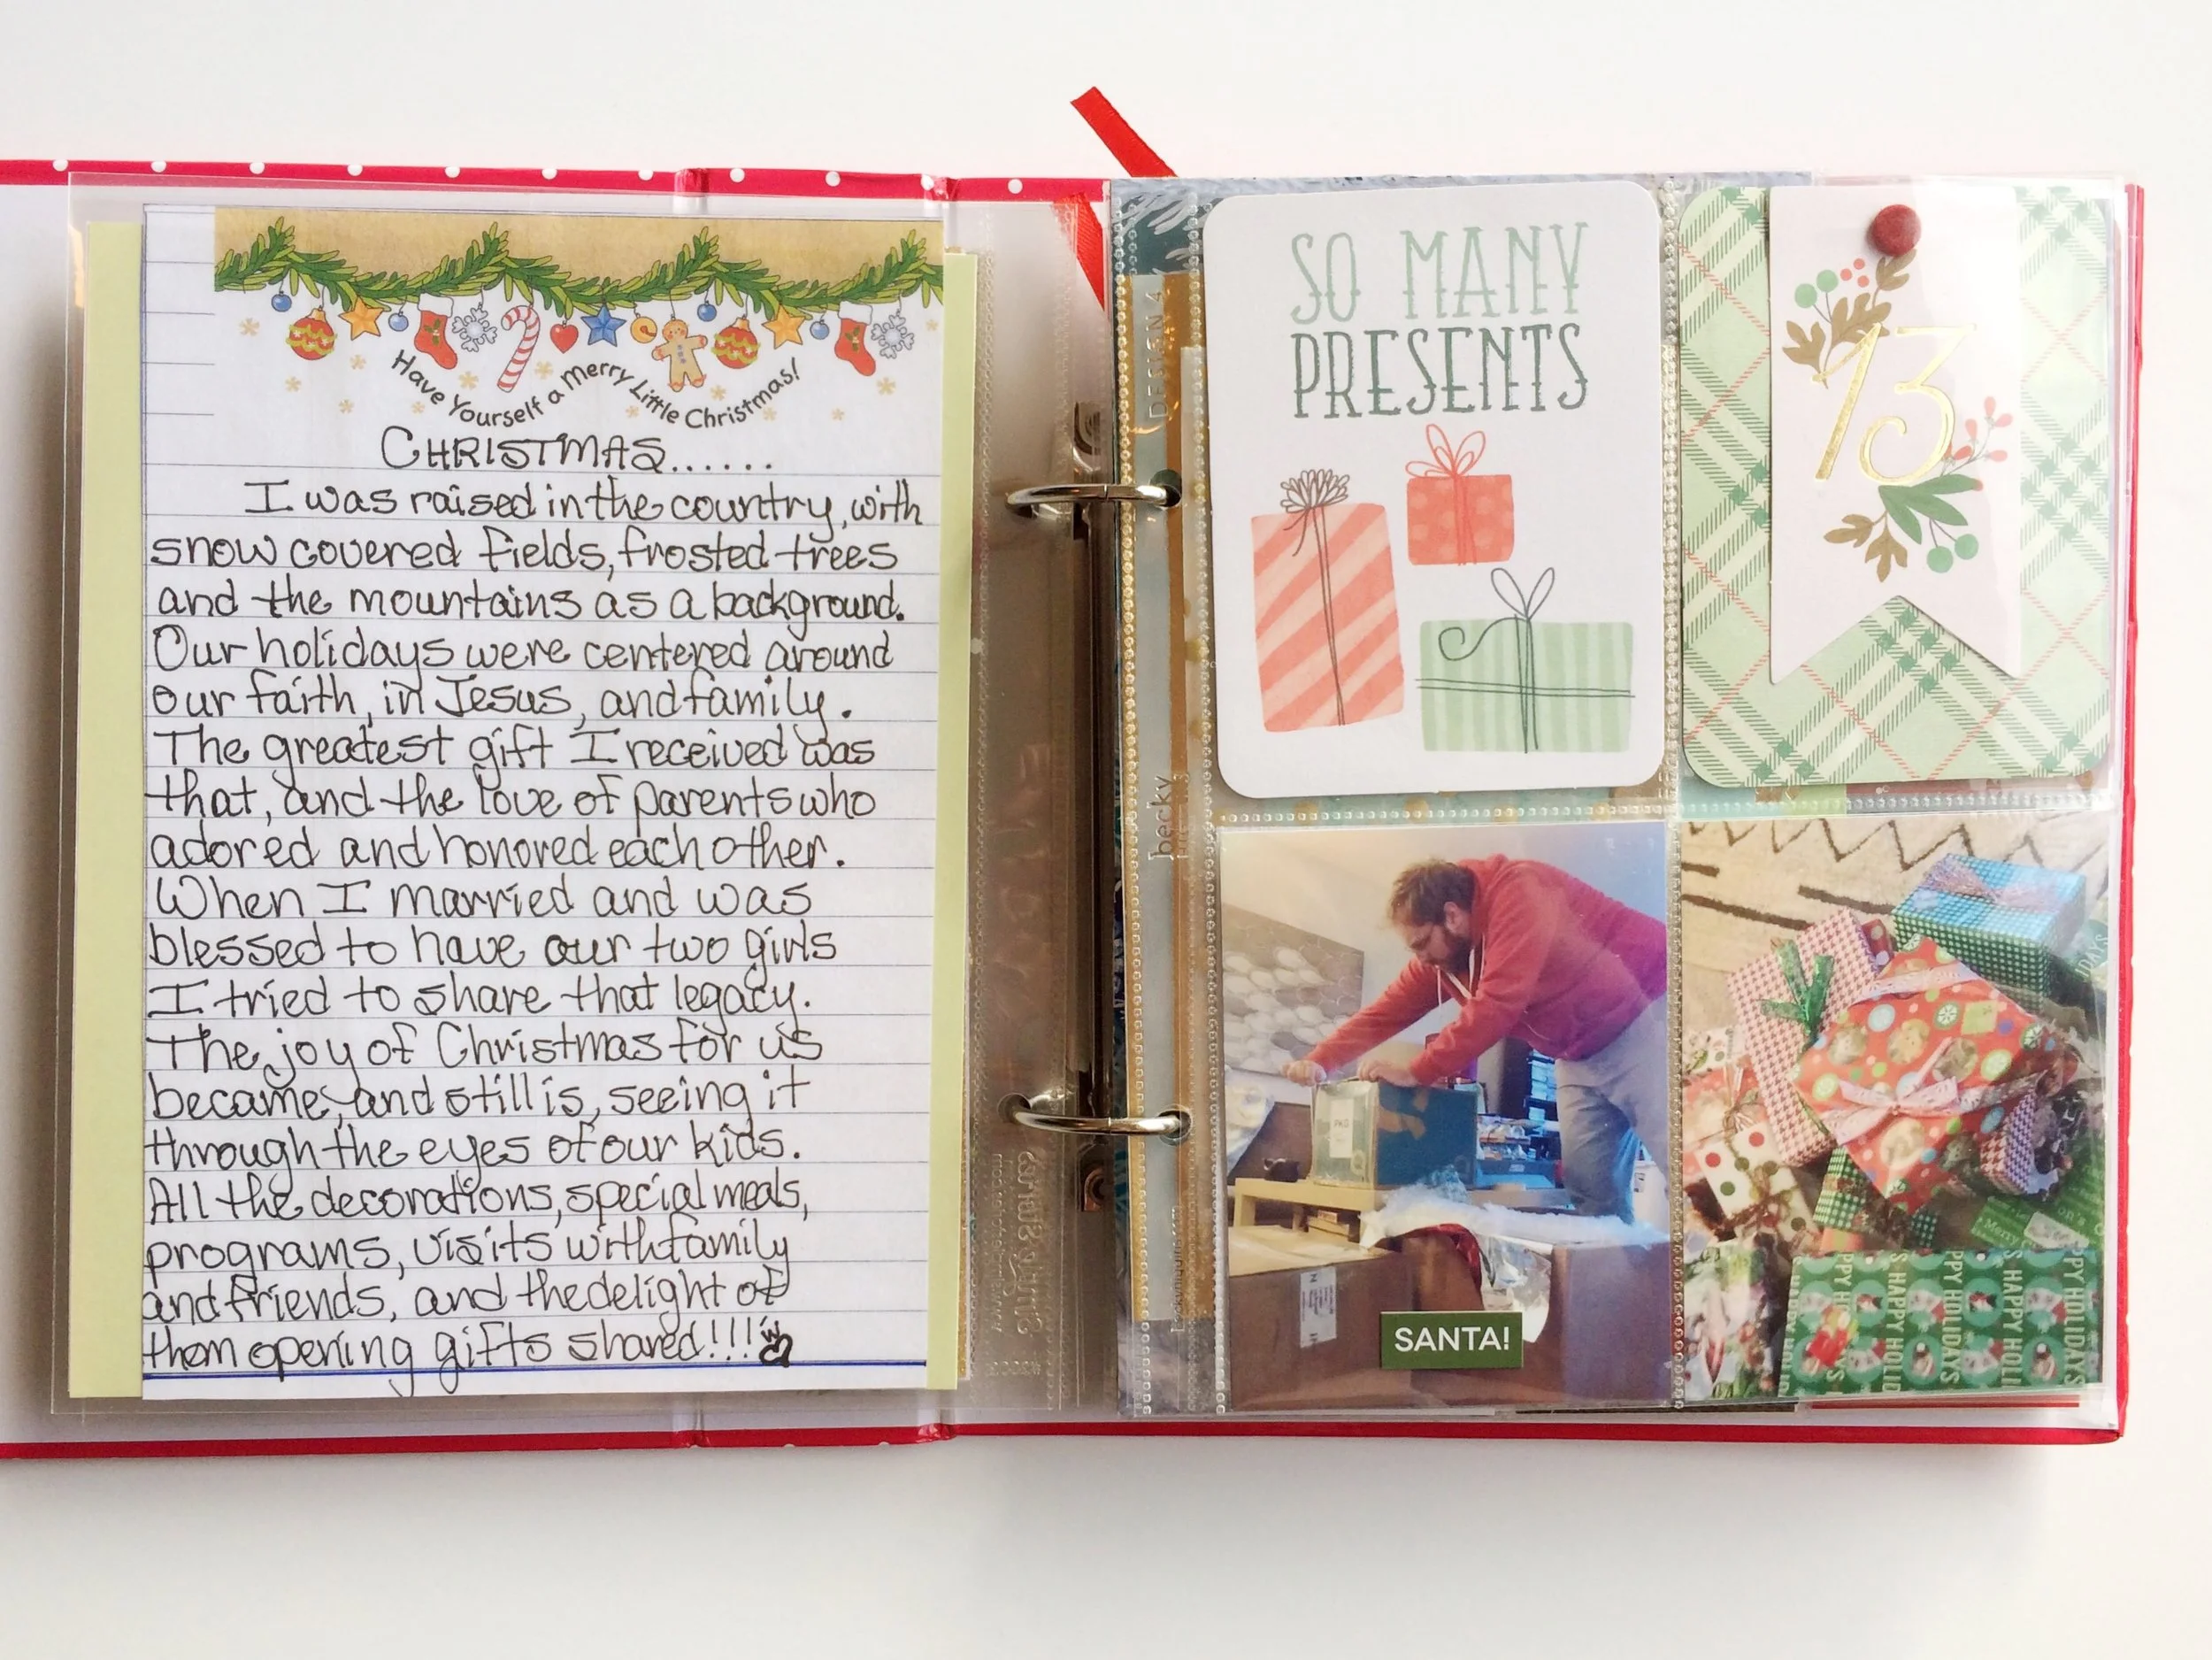 Have Yourself a Merry Little Christmas!
CHRISTMAS......
I was raised in the country, with
snow covered fields, frosted trees
and the mountains as a background.
Our holidays were centered around
our faith, in Jesus, and family.
The greatest gift I received was
that, and the love of parents who
adored and honored each other.
When I married and was
blessed to have our two girls
I tried to share that legacy.
The joy of Christmas for us
became, and still is, seeing it
through the eyes of our kids.
All the decorations, special meals,
programs, visits with family
and friends, and the delight of
them opening gifts shared!!!
DESIGN 4
becky
SO MANY
PRESENTS
13
SANTA!
HAPPY HOLIDAYS